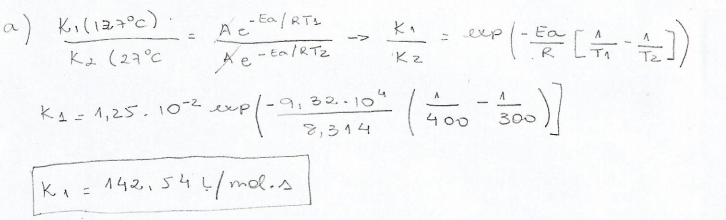 a) K1(127°C) / K2(27°C = A e^-Ea/RT1 / A e^-Ea/RT2 -> K1/K2 = exp(-Ea/R [1/T1 - 1/T2])
K1 = 1,25 . 10^-2 exp(-9,32.10^4 / 8,314 (1/400 - 1/300)]
K1 = 142,54 L/mol.s